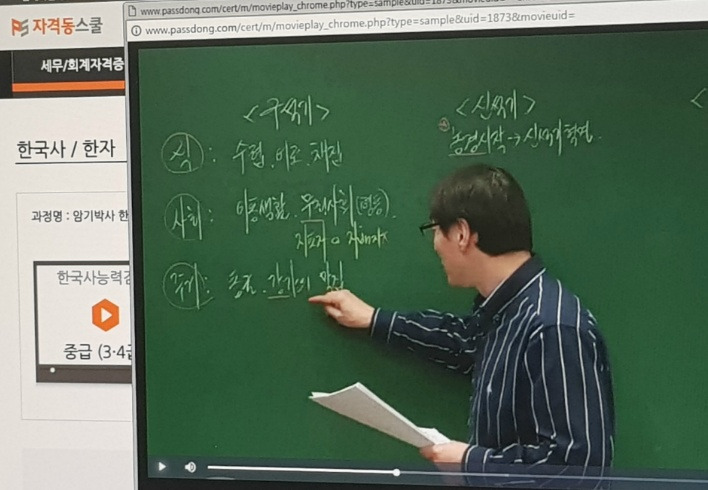 www.passdong.com/cert/m/movieplay_chrome.php?type=sample&uid=1873&movieuid=
www.passdong.com/cert/m/movieplay_chrome.php?type=sample&uid=1873&movieuid=
자격동스쿨
세무/회계자격증
한국사 / 한자
과정명 : 암기박사 한
한국사능력검
중급 (3·4급
<구석기>
식 : 수렵, 어로, 채집
사회 : 이동생활, 무계급사회(평등).
지도자 o 지배자x
주거 : 동굴, 강가의 막집
<신석기>
농경시작 → 신석기혁명.
<